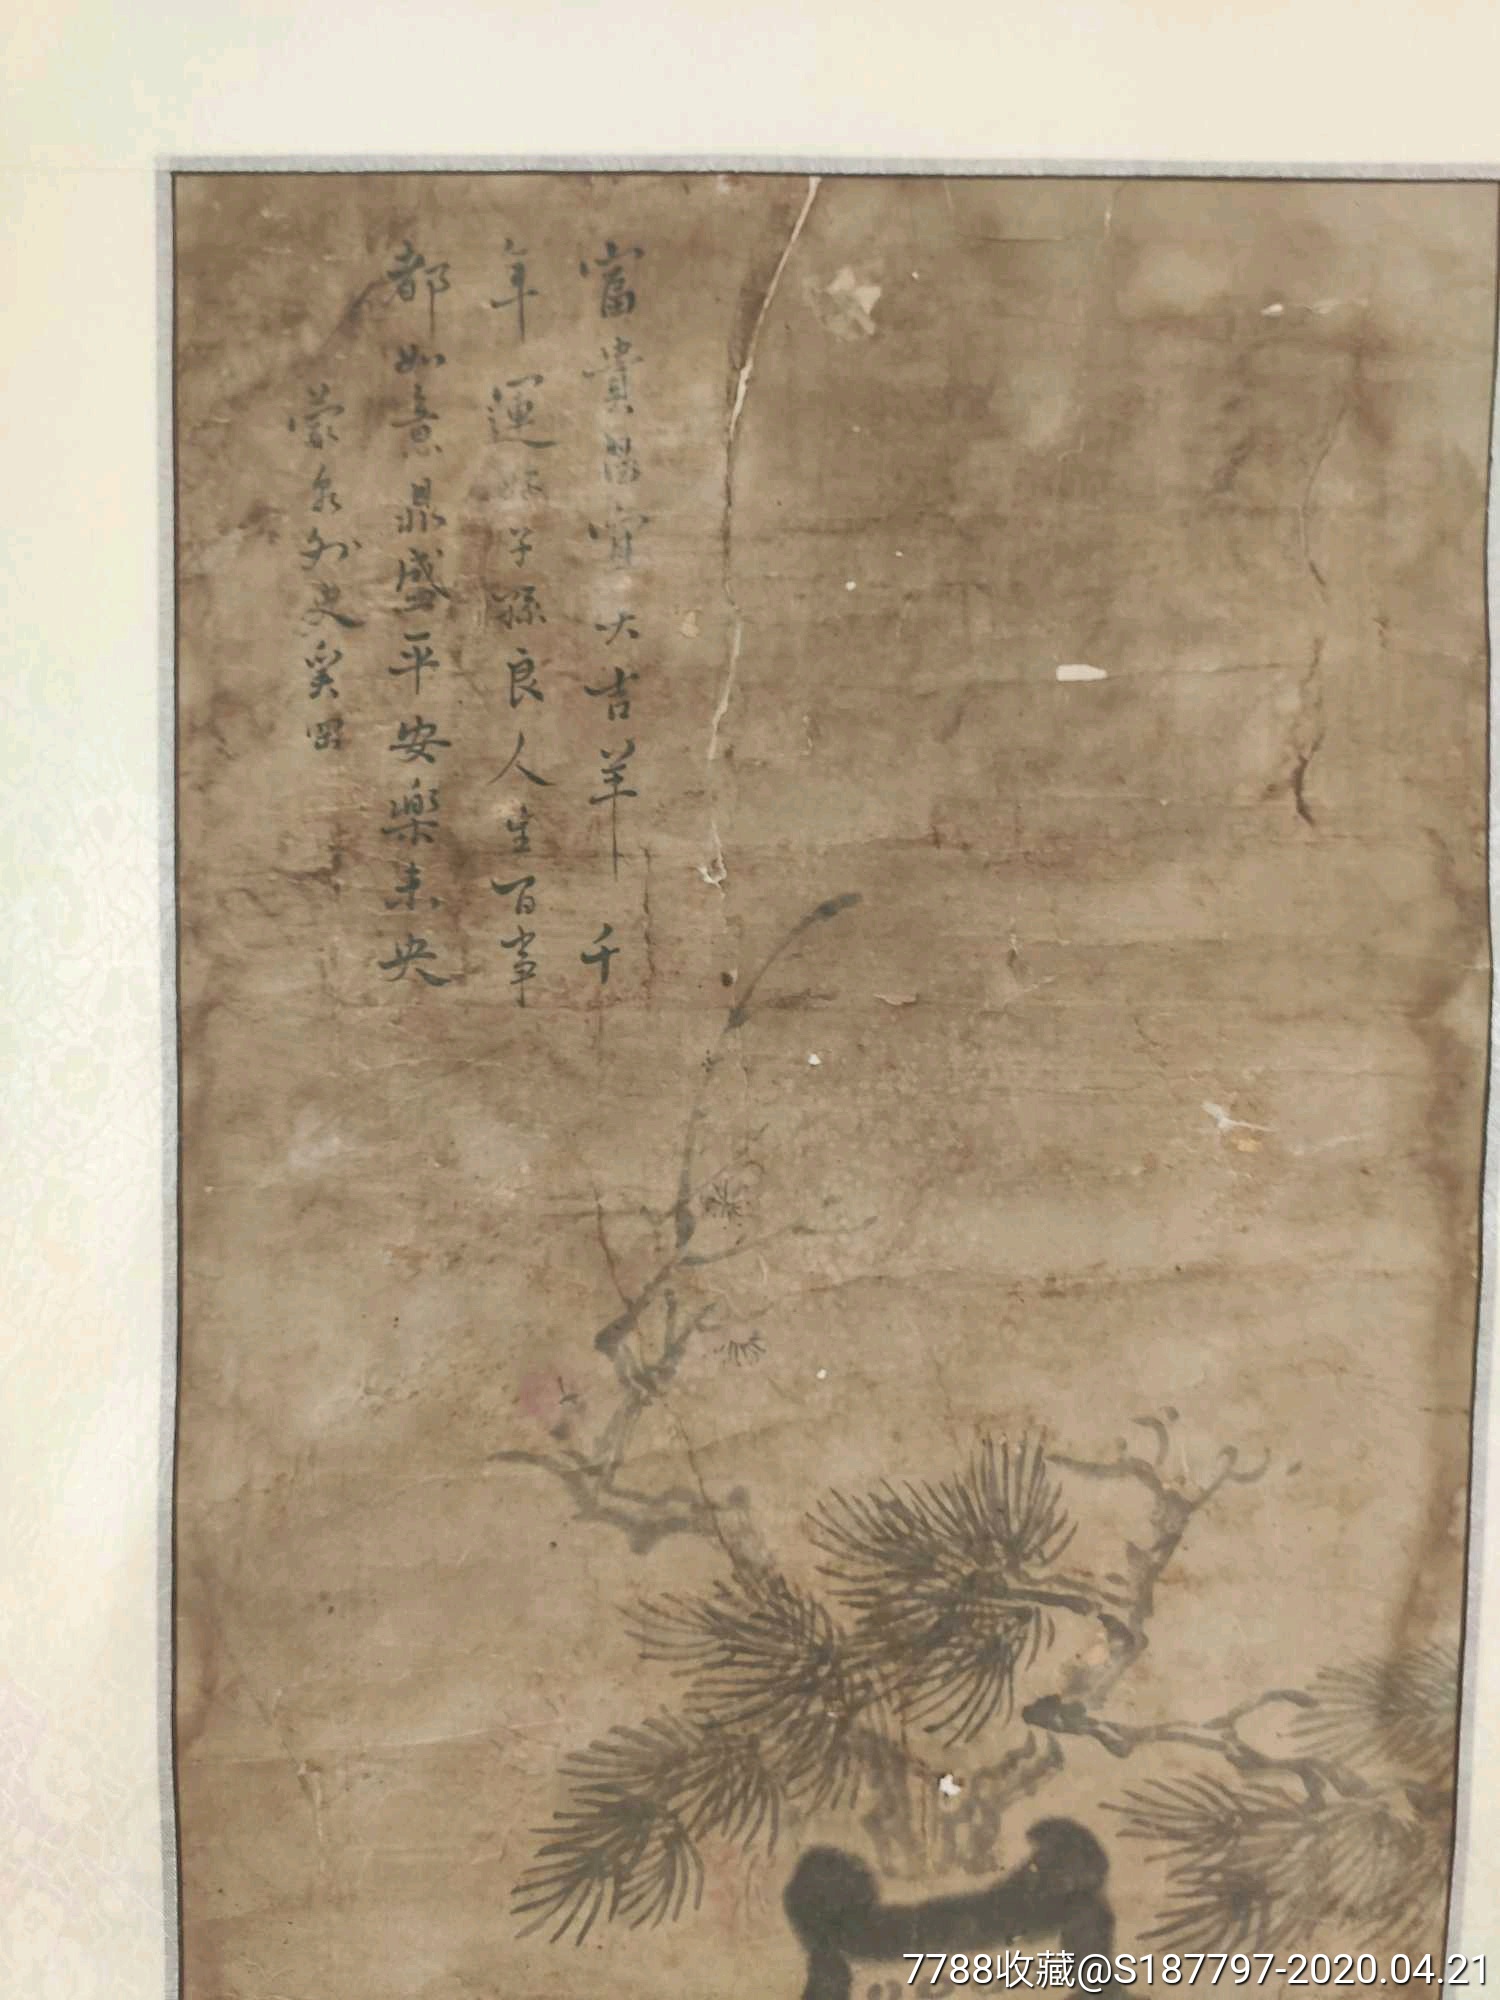 富貴昌宜大吉羊 千
年運好子孫良人生百事
都如意鼎盛平安樂未央
蒙泉外史奚岡
7788收藏@S187797-2020.04.21